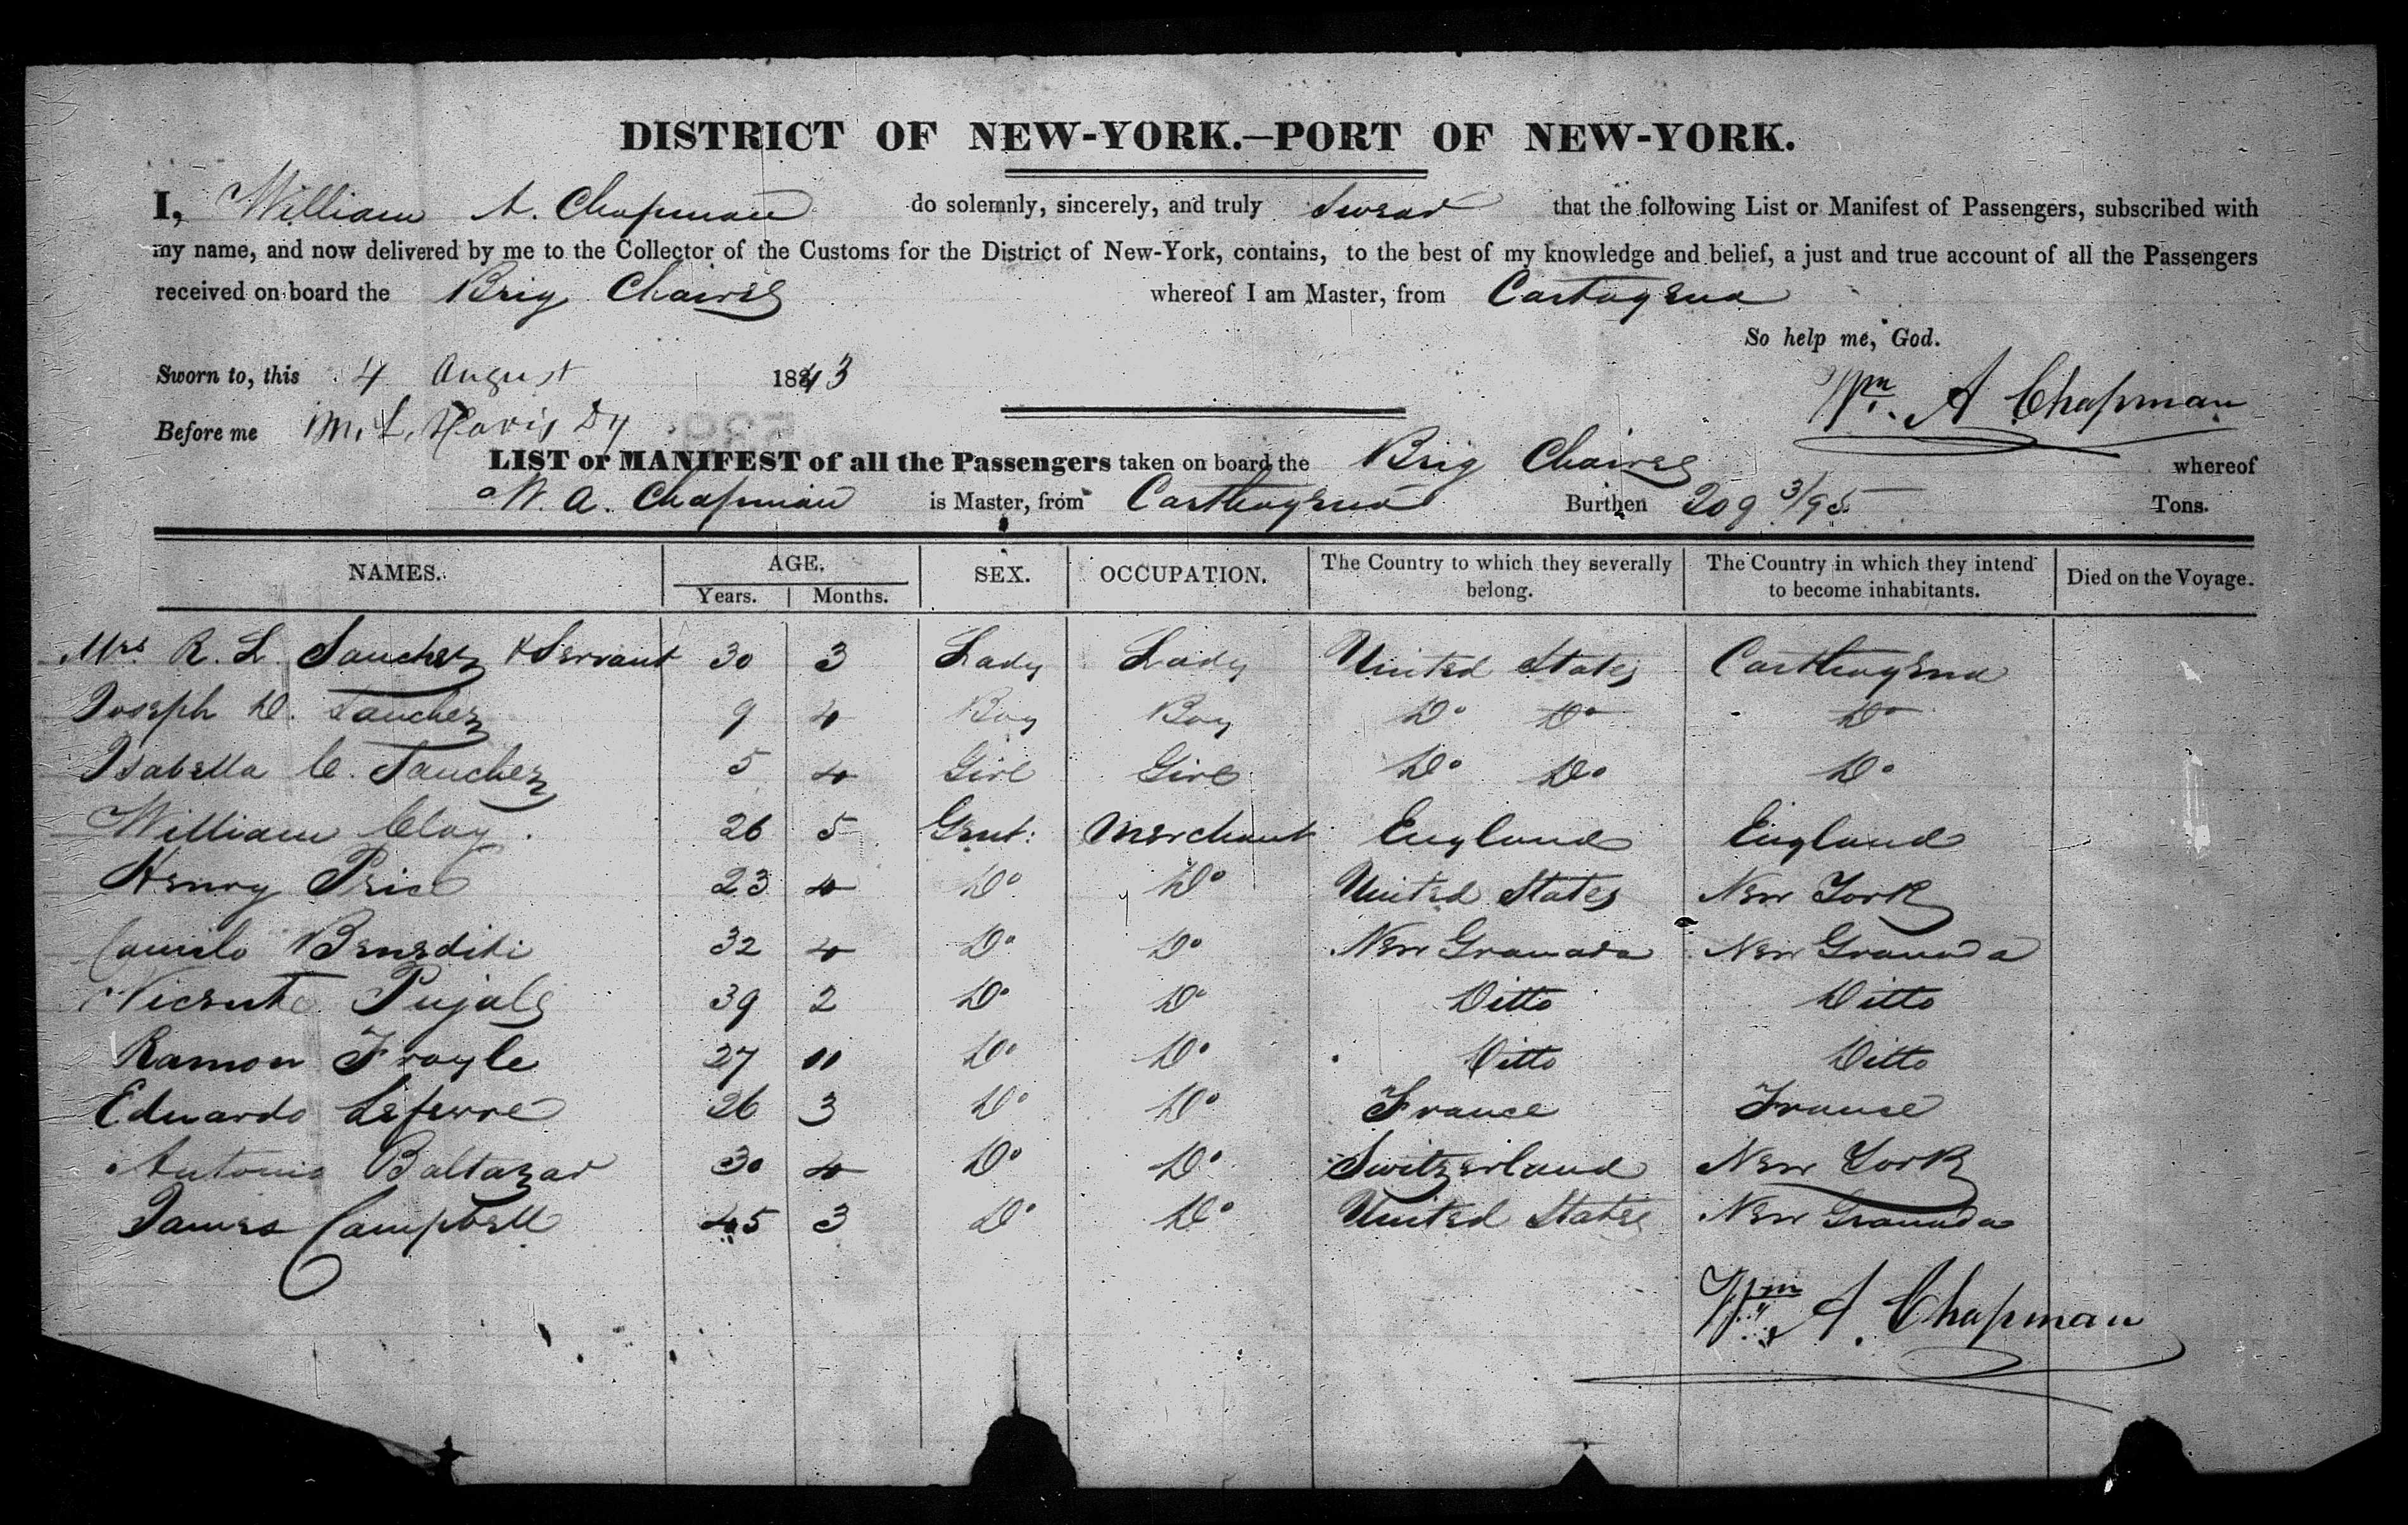 DISTRICT OF NEW-YORK.—PORT OF NEW-YORK.
I, William A. Chapman do solemnly, sincerely, and truly Swear that the following List or Manifest of Passengers, subscribed with
my name, and now delivered by me to the Collector of the Customs for the District of New-York, contains, to the best of my knowledge and belief, a just and true account of all the Passengers
received on board the Brig Chaires whereof I am Master, from Cartagena
So help me, God.
Sworn to, this 4 August 1843
Wm. A Chapman
Before me M. L. Davis Dy
LIST or MANIFEST of all the Passengers taken on board the Brig Chaires whereof
W. A. Chapman is Master, from Carthagena Burthen 209 3/95 Tons.
NAMES. AGE. SEX. OCCUPATION. The Country to which they severally belong. The Country in which they intend to become inhabitants. Died on the Voyage.
Years. Months.
Mrs R. L. Sanchez & Servant 30 3 Lady Lady United States Carthagena
Joseph D. Sanchez 9 4 Boy Boy Do Do Do
Isabella C. Sanchez 5 4 Girl Girl Do Do Do
William Clay. 26 5 Gent: Merchant England England
Henry Price 23 4 Do Do United States New York
Camilo Benediti 32 4 Do Do New Granada New Granada
Vicente Pujals 39 2 Do Do Ditto Ditto
Ramon Frayle 27 11 Do Do Ditto Ditto
Eduardo Lefevre 26 3 Do Do France France
Antonio Baltazar 30 4 Do Do Switzerland New York
James Campbell 45 3 Do Do United States New Granada
Wm A. Chapman